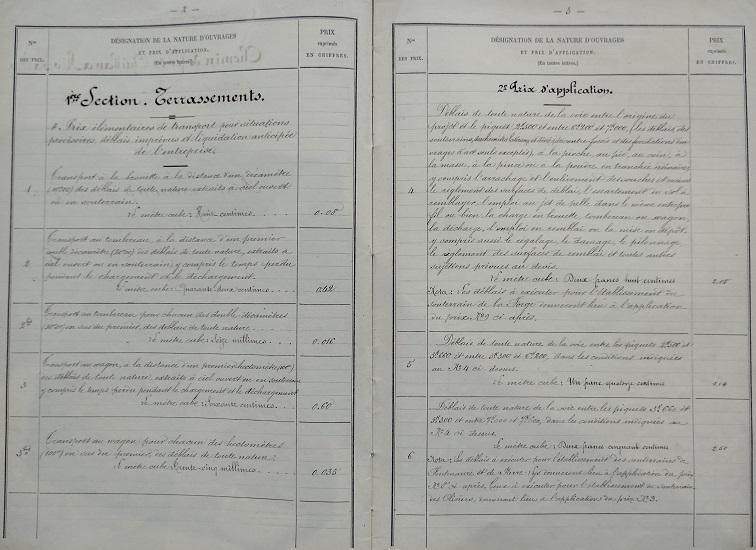 — 2 —
Nos
DES PRIX.
DÉSIGNATION DE LA NATURE D'OUVRAGES
ET PRIX D'APPLICATION.
(En toutes lettres)
PRIX
exprimés
EN CHIFFRES.
1ère Section. Terrassements.
Prix élémentaires de transport pour situations
provisoires, déblais imprévus et liquidation anticipée
de l'entreprise.
1
Transport à la brouette à la distance d'un décamètre
des déblais de toute nature extraits à ciel ouvert
ou en souterrain.
Le mètre cube: Huit centimes
0.08
2
Transport au tombereau, à la distance d'un premier
double décamètre des déblais de toute nature, extraits à
ciel ouvert ou en souterrain, y compris le temps perdu
pendant le chargement et le déchargement.
Le mètre cube: Quarante deux centimes
0.42
2 bis
Transport au tombereau pour chacun des doubles décamètres
en sus du premier, des déblais de toute nature
Le mètre cube: Seize millimes
0.016
3
Transport au wagon, à la distance d'un premier hectomètre (100m)
des déblais de toute nature, extraits à ciel ouvert ou en souterrain
y compris le temps perdu pendant le chargement et le déchargement
Le mètre cube: Soixante centimes
0.60
3 bis
Transport au wagon, pour chacun des hectomètres
(100m) en sus du premier, des déblais de toute nature:
Le mètre cube: Trente-cinq millimes
0.035
— 3 —
Nos
DES PRIX.
DÉSIGNATION DE LA NATURE D'OUVRAGES
ET PRIX D'APPLICATION.
(En toutes lettres)
PRIX
exprimés
EN CHIFFRES.
2° Prix d'application.
4
Déblais de toute nature de la voie entre l'origine du
projet et le piquet et entre les déblais des
souterrains
exceptés, à la pioche, au pic, au coin, à
la masse, à la pince, ou à la poudre en tranchée
y compris l'arrachage et l'enlèvement des souches et racines
le règlement des surfaces de déblai, l'essartement du sol à
remblayer, l'emploi au jet de pelle dans le même entre-pro-
fil ou bien la charge en brouette, tombereau ou wagon,
la décharge, l'emploi en remblai ou la mise en dépôt,
y compris aussi le régalage, le damage, le pilonnage
le règlement des surfaces de remblai et toutes autres
sujétions prévues au devis.
Le mètre cube: Deux francs huit centimes
2.08
Nota: Les déblais à exécuter pour l'établissement du
souterrain de la donneront lieu à l'application
du prix N°9 ci-après.
5
Déblais de toute nature de la voie entre les piquets
et entre dans les conditions indiquées
au N°4 ci-dessus.
Le mètre cube: Un franc quatorze centimes
6
Déblais de toute nature de la voie entre les piquets
et entre dans les conditions indiquées au
N°4 ci-dessus.
Le mètre cube: Deux francs cinquante centimes
Nota: Les déblais à exécuter pour l'établissement des souterrains de
et de donneront lieu à l'application du prix
ci-après. Ceux à exécuter pour l'établissement du souterrain
des Oliviers, donneront lieu à l'application du prix